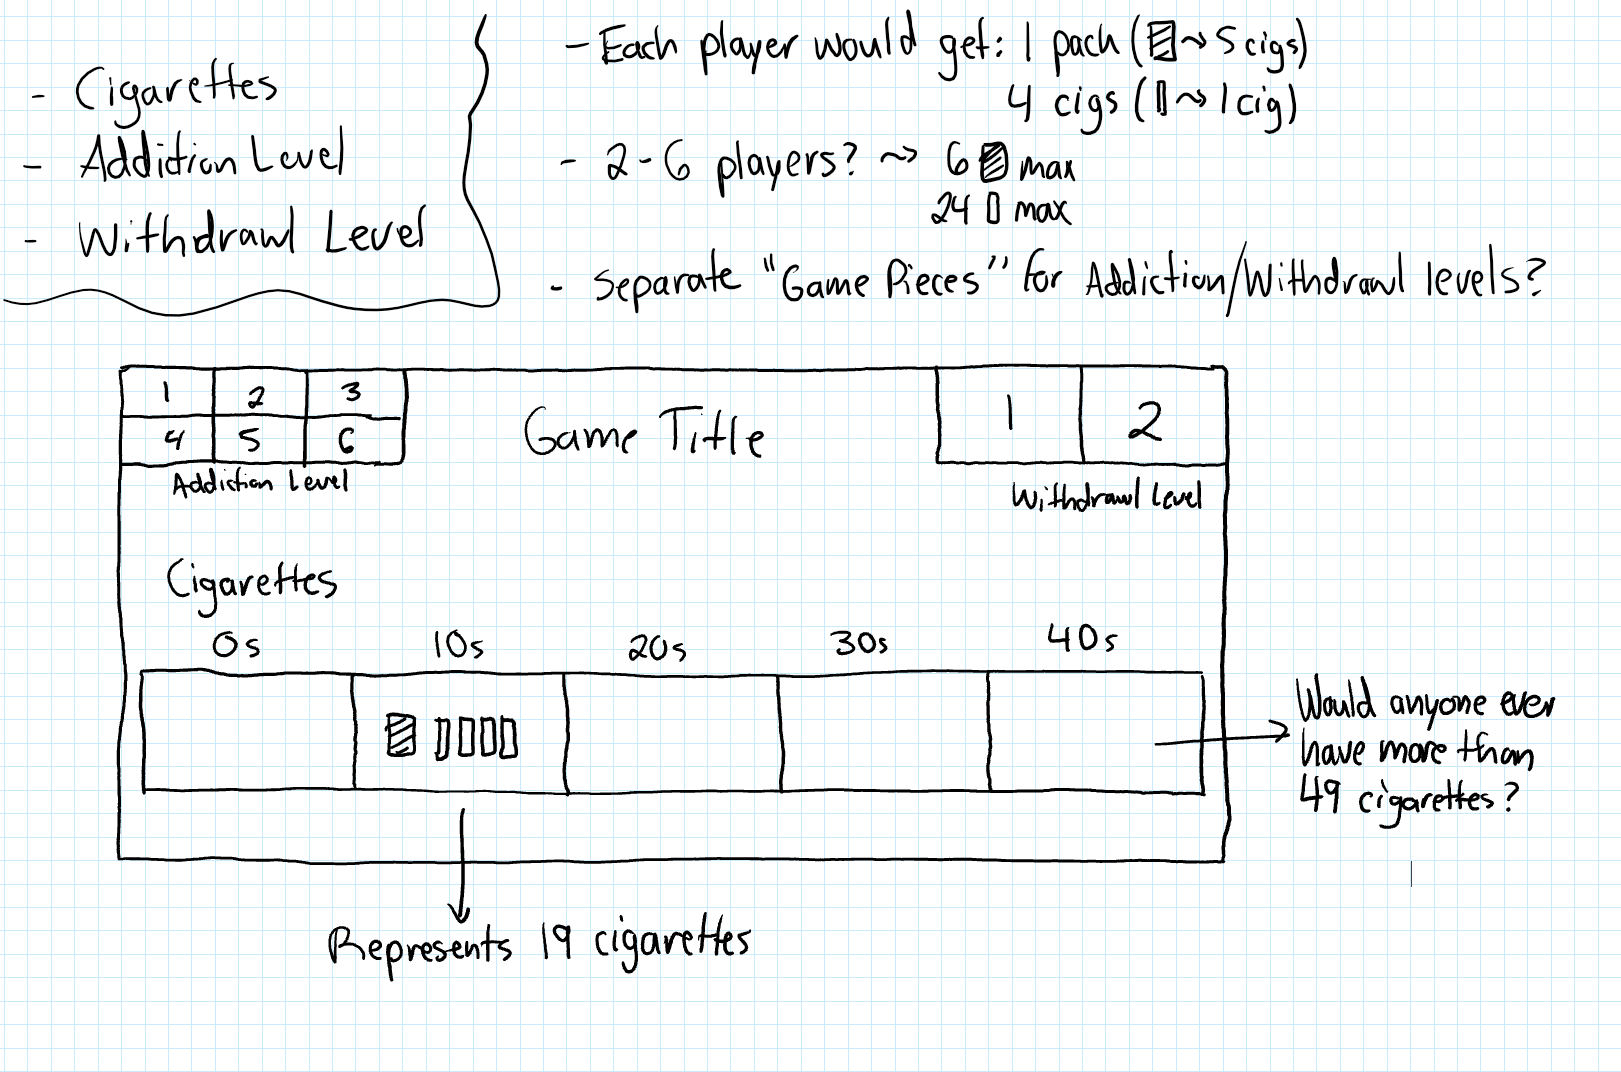 - Cigarettes
- Addiction Level
- Withdrawl Level
- Each player would get: 1 pack (~> 5 cigs)
4 cigs (~> 1 cig)
- 2-6 players? ~> 6 max
24 max
- Separate "Game Pieces" for Addiction/Withdrawl levels?
1 2 3
4 5 6
Addiction Level
Game Title
1 2
Withdrawl Level
Cigarettes
0s 10s 20s 30s 40s
Would anyone ever
have more than
49 cigarettes?
Represents 19 cigarettes